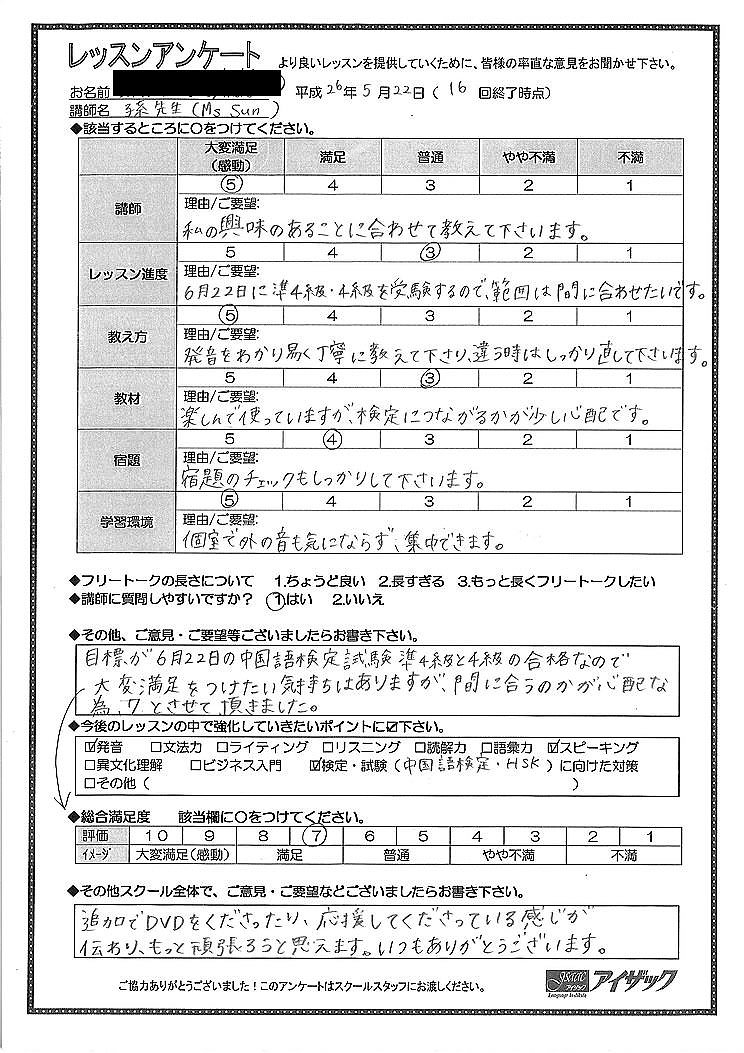 レッスンアンケート より良いレッスンを提供していくために、皆様の率直な意見をお聞かせ下さい。
お名前 平成26年5月22日(16 回終了時点)
講師名 孫先生(Ms Sun)
◆該当するところに○をつけてください。
大変満足(感動) 満足 普通 やや不満 不満
講師 ⑤ 4 3 2 1
理由/ご要望:
私の興味のあることに合わせて教えて下さいます。
レッスン進度 5 4 ③ 2 1
理由/ご要望:
6月22日に準4級・4級を受験するので、範囲は間に合わせたいです。
教え方 ⑤ 4 3 2 1
理由/ご要望:
発音をわかり易く丁寧に教えて下さり、違う時はしっかり直して下さいます。
教材 5 4 ③ 2 1
理由/ご要望:
楽しんで使っていますが、検定につながるかが少し心配です。
宿題 5 ④ 3 2 1
理由/ご要望:
宿題のチェックもしっかりして下さいます。
学習環境 ⑤ 4 3 2 1
理由/ご要望:
個室で外の音も気にならず、集中できます。
◆フリートークの長さについて 1.ちょうど良い 2.長すぎる 3.もっと長くフリートークしたい
◆講師に質問しやすいですか? ①.はい 2.いいえ
◆その他、ご意見・ご要望等ございましたらお書き下さい。
目標が6月22日の中国語検定試験準4級と4級の合格なので
大変満足をつけたい気持ちはありますが、間に合うのかが心配な
為、7とさせて頂きました。
◆今後のレッスンの中で強化していきたいポイントに☑下さい。
☑発音 □文法力 □ライティング □リスニング □読解力 □語彙力 ☑スピーキング
□異文化理解 □ビジネス入門 ☑検定・試験(中国語検定・HSK)に向けた対策
□その他( )
◆総合満足度 該当欄に○をつけてください。
評価 10 9 8 ⑦ 6 5 4 3 2 1
イメージ 大変満足(感動) 満足 普通 やや不満 不満
◆その他スクール全体で、ご意見・ご要望などございましたらお書き下さい。
追加でDVDをくださったり、応援してくださっている感じが
伝わり、もっと頑張ろうと思えます。いつもありがとうございます。
ご協力ありがとうございました!このアンケートはスクールスタッフにお渡しください。
ISAAC アイザック Language Institute アイザック